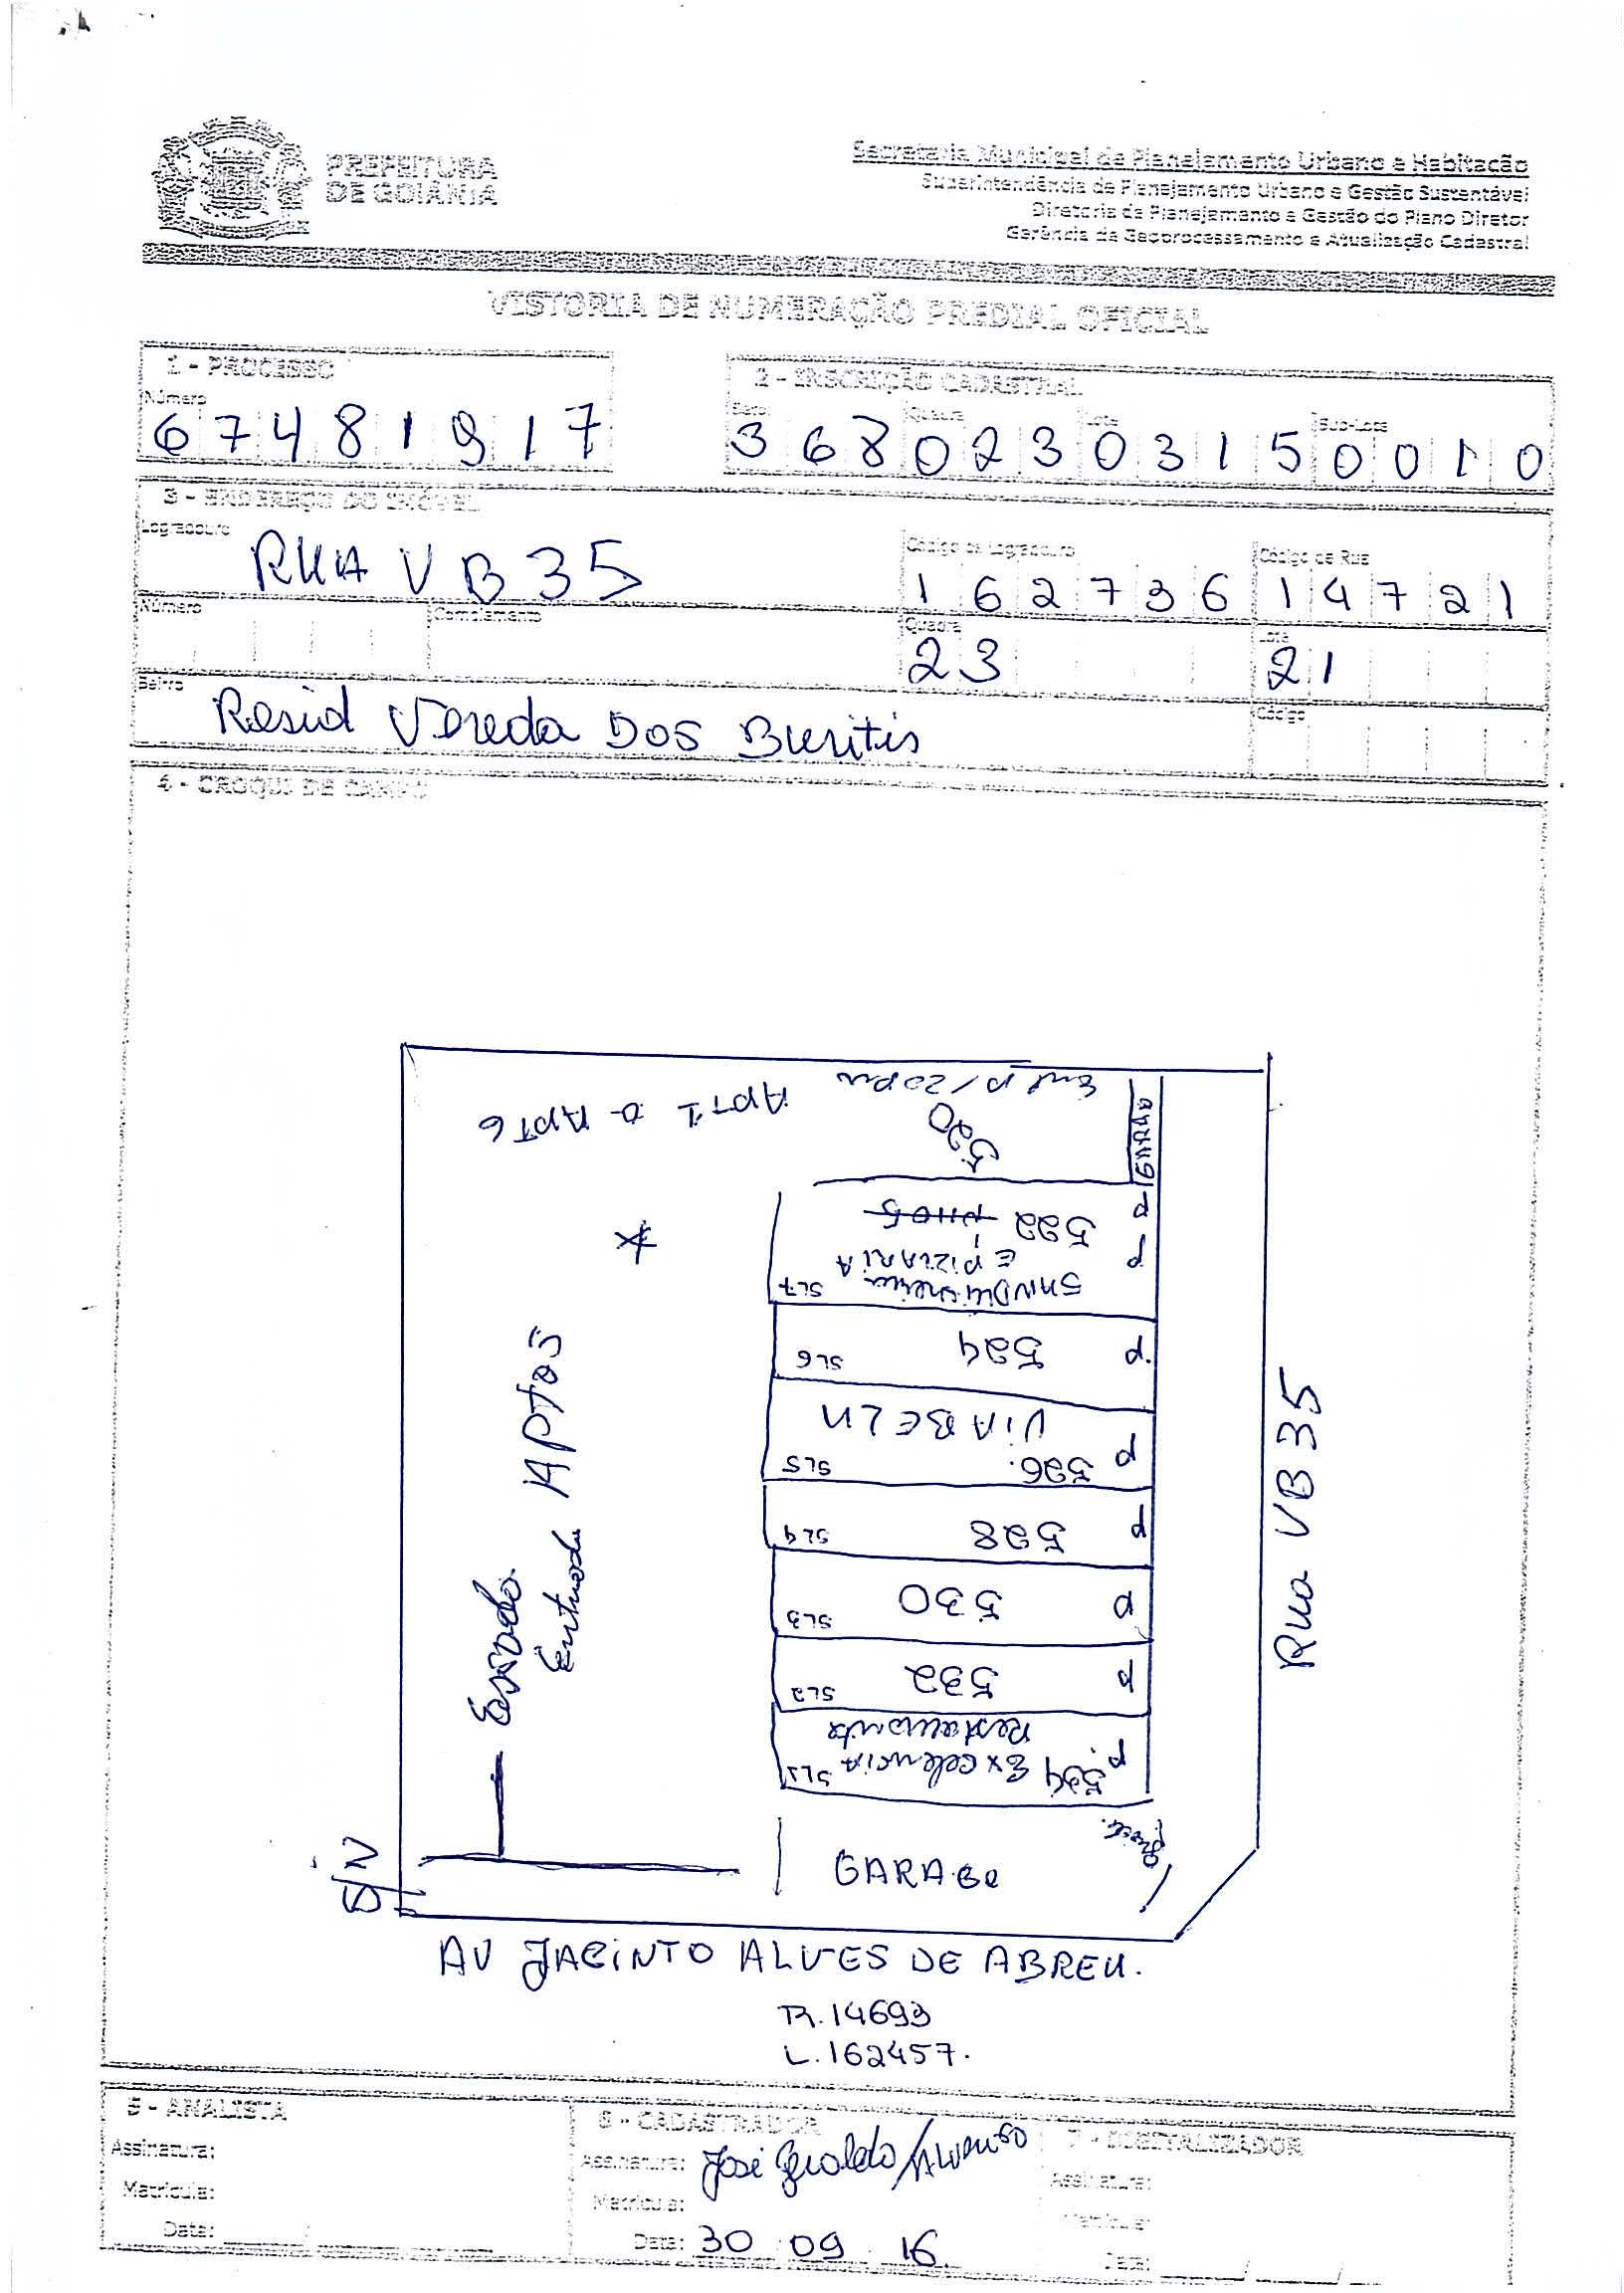 PREFEITURA
DE GOIÂNIA
Secretaria Municipal de Planejamento Urbano e Habitação
Superintendência de Planejamento Urbano e Gestão Sustentável
Diretoria de Planejamento e Gestão do Plano Diretor
Gerência de Geoprocessamento e Atualização Cadastral
VISTORIA DE NUMERAÇÃO PREDIAL OFICIAL
1 - PROCESSO
Número
67481917
2 - INSCRIÇÃO CADASTRAL
Setor Quadra Lote Sub-Lote
368 023 0315 0010
3 - ENDEREÇO DO IMÓVEL
Logradouro
RUA VB 35
Código de Logradouro
162736
Código de Rua
14721
Número Complemento
Quadra
23
Lote
21
Bairro
Resid Vereda DOS Buritis
Código
4 - CROQUI DE CAMPO
APT 1 a APT 6
520
garag
522
SANDUicheria
E PIZZARIA
SL7
P
P
524
SL6
P.
VIABELA
526.
SL5
P
528
SL4
P
530
SL3
P
532
SL2
P
534 Excelencia
Restaurante
SL1
P.
*
Escada
Entrada APTOS
S/N
GARAGe
Rua VB 35
AV JACINTO ALVES DE ABREU.
R. 14693
L. 162457.
5 - ANALISTA
Assinatura:
Matrícula:
Data:
6 - CADASTRADOR
Assinatura: José Geraldo/
Matrícula:
Data: 30 09 16
7 - DIGITALIZADOR
Assinatura:
Matrícula:
Data: